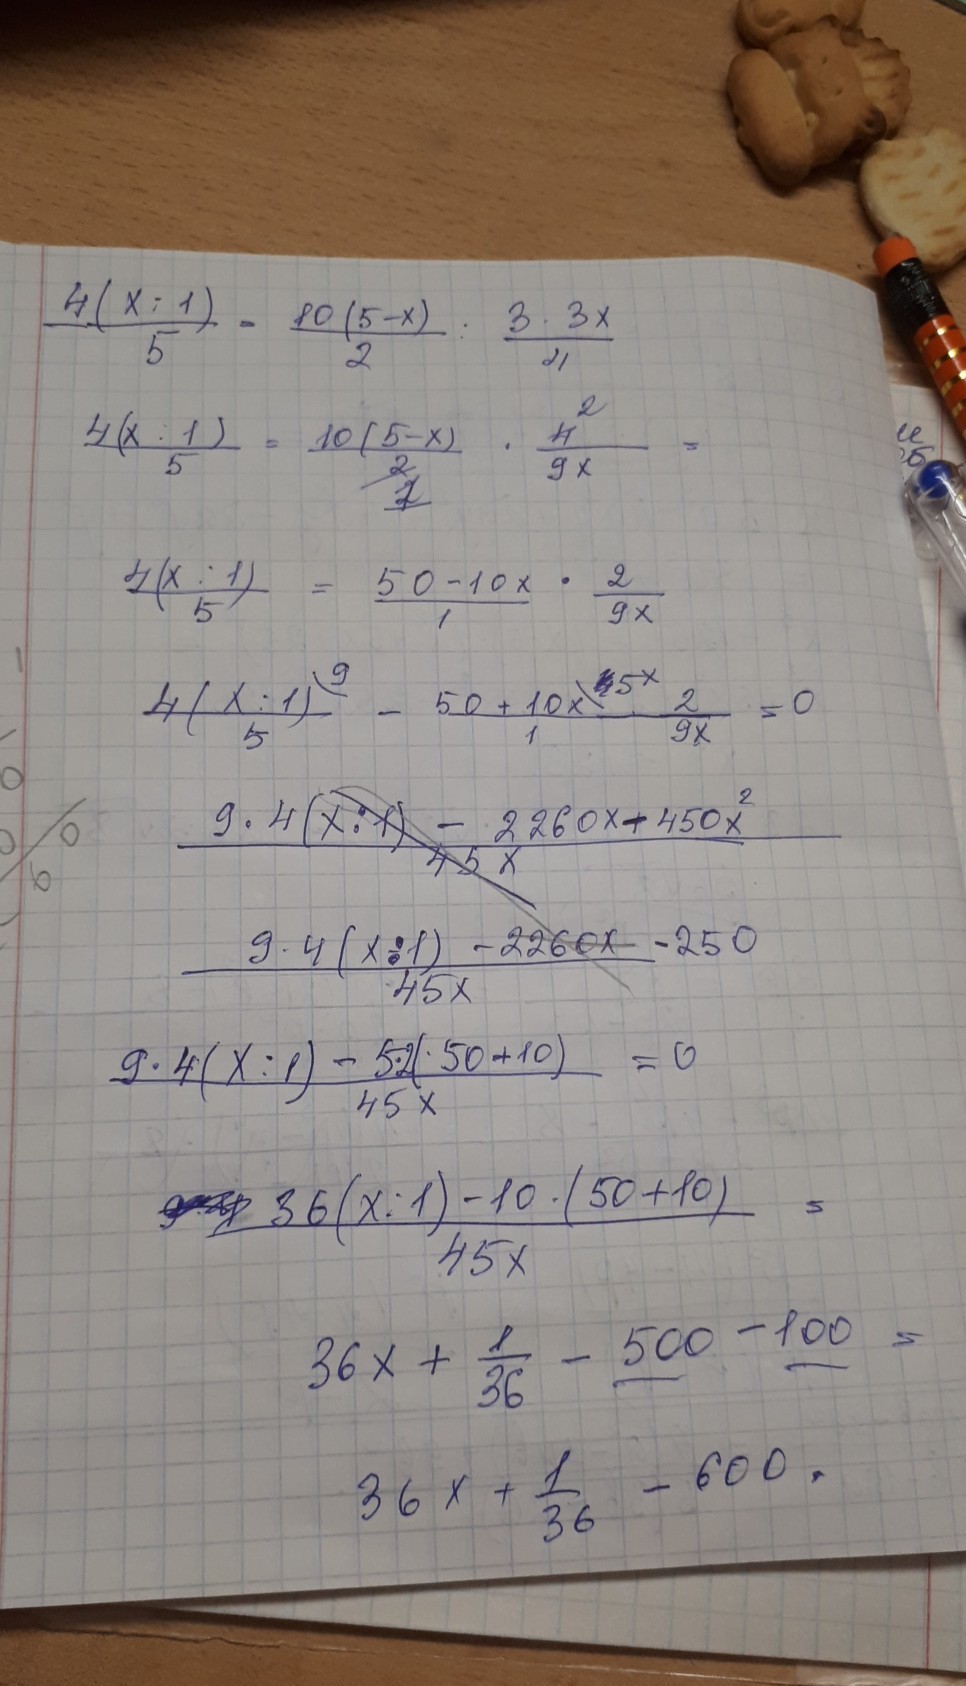 4(x:1)/5 - 10(5-x)/2 : 3·3x/4
4(x:1)/5 = 10(5-x)/2 1 · 4 2/9x =
4(x:1)/5 = 50-10x/1 · 2/9x
4(x:1)\9/5 - 50+10x\45x/1 2/9x = 0
9·4(x:1) - 2260x+450x²/45x
9·4(x:1) -2260x -250/45x
9·4(x:1) - 5·2(·50+10)/45x = 0
36(x:1)-10·(50+10)/45x =
36x + 1/36 - 500 - 100 =
36x + 1/36 - 600.